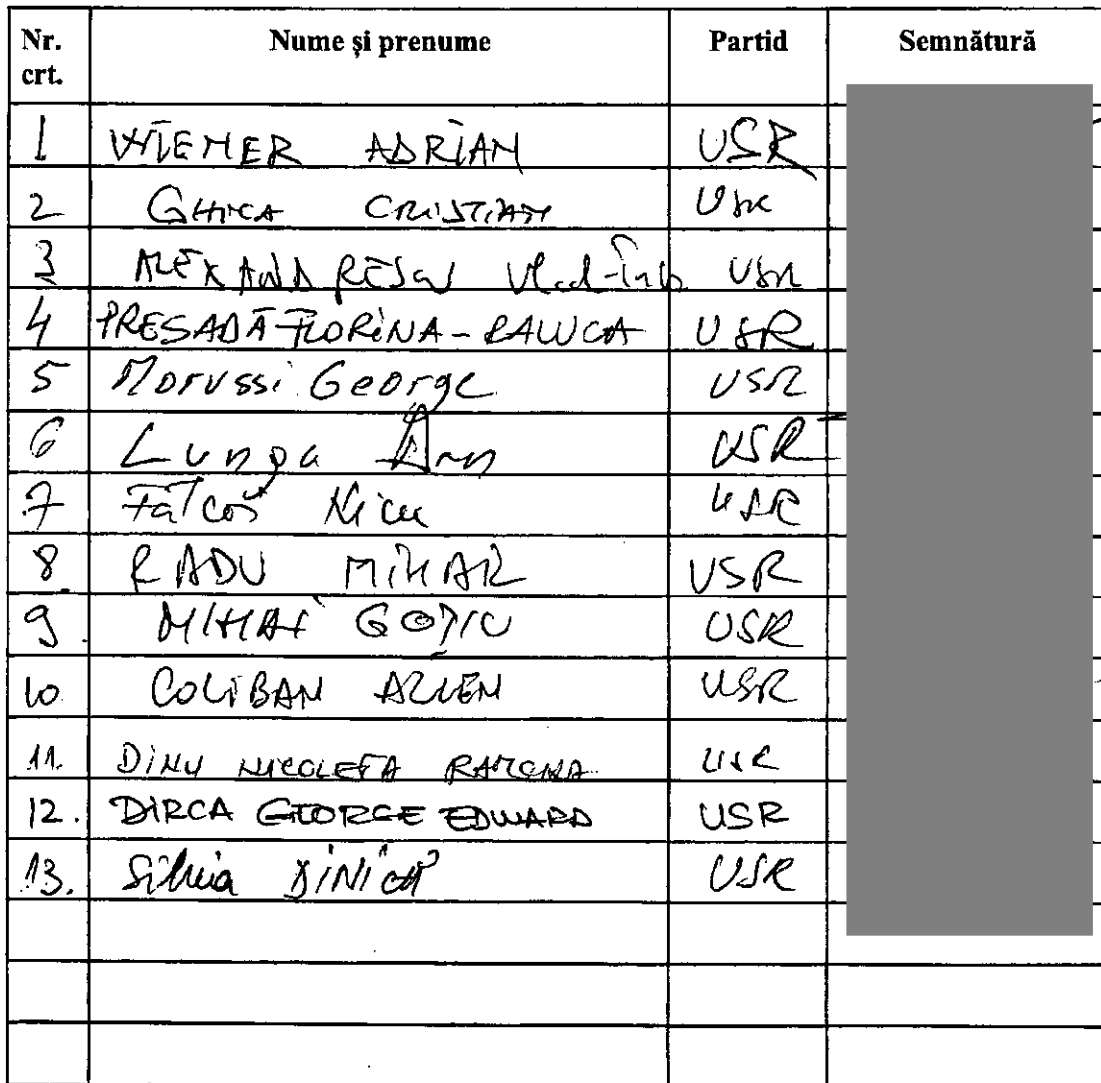 Nr. crt. Nume și prenume Partid Semnătură
1 WIENER ADRIAN USR
2 GHICA CRISTIAN USR
3 ALEXANDRESCU Vlad- USR
4 PRESADĂ FLORINA-RALUCA USR
5 Marussi George USR
6 Lungu USR
7 Fălcoi Nicu USR
8. RADU MIHAIL USR
9. MIHAI GOȚIU USR
10. COLIBAN ALLEN USR
11. DINU NICOLETA RAMONA USR
12. DIRCA GEORGE EDWARD USR
13. Silvia DINICĂ USR